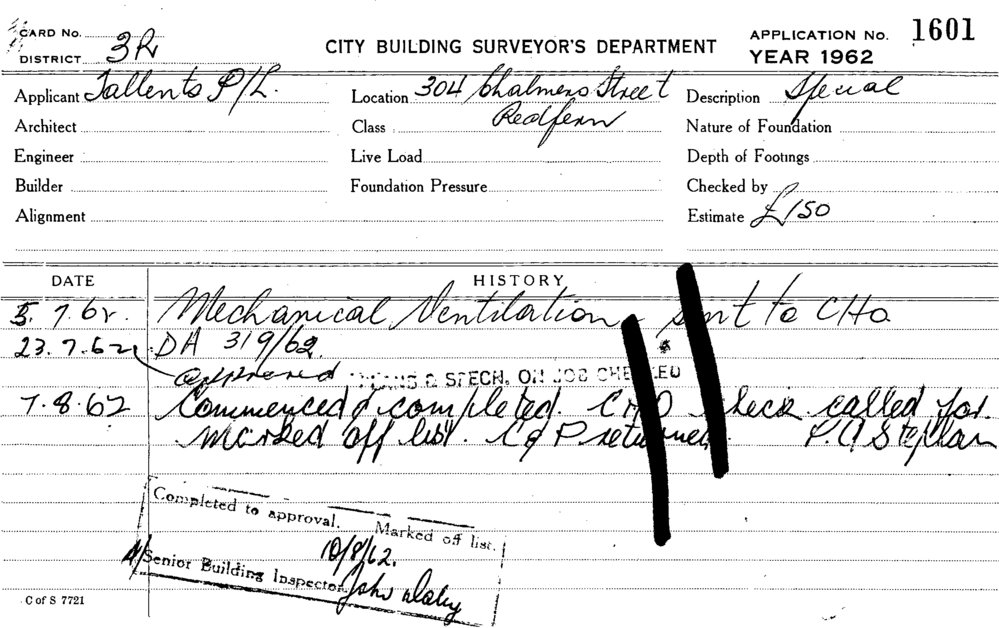 CARD No.
DISTRICT 3R
CITY BUILDING SURVEYOR'S DEPARTMENT
APPLICATION No. 1601
YEAR 1962
Applicant Tallents P/L.
Location 304 Chalmers Street
Redfern
Description Special
Architect
Class
Nature of Foundation
Engineer
Live Load
Depth of Footings
Builder
Foundation Pressure
Checked by
Alignment
Estimate £150
DATE HISTORY
5.7.62. Mechanical Ventilation sent to CHO
23.7.62 DA 319/62
approved PLANS & SPECN. ON JOB CHECKED
7.8.62 Commenced & completed. CHO check called for.
marked off list. C & P returned. P.A Stephan
Completed to approval. Marked off list.
10/8/62.
A/Senior Building Inspector John Daley
C of S 7721